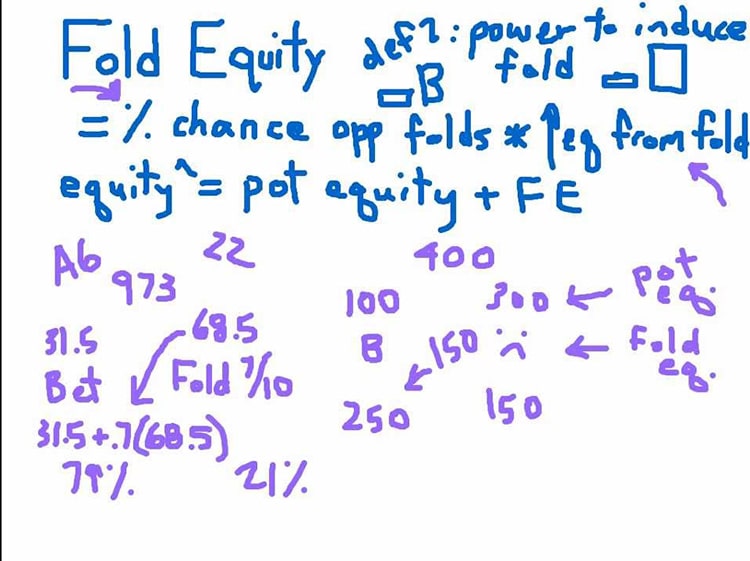 Fold Equity def2: power to induce
B fold
= % chance opp folds * ↑eq from fold
equity^ = pot equity + FE
A6 22 400
973 100 300 ← pot eq.
31.5 68.5 B 150 ← fold eq.
Bet Fold 7/10
31.5+.7(68.5) 250 150
79% 21%